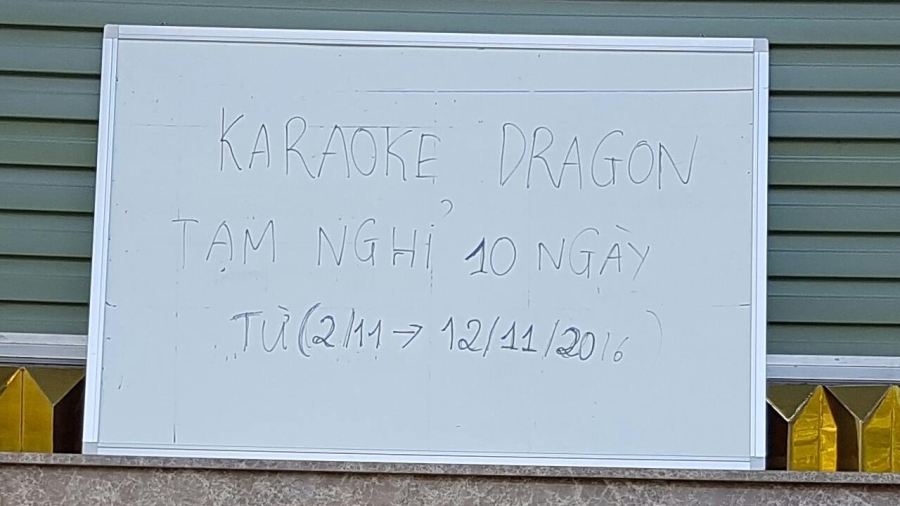 KARAOKE DRAGON
TẠM NGHỈ 10 NGÀY
TỪ (2/11 → 12/11/2016)